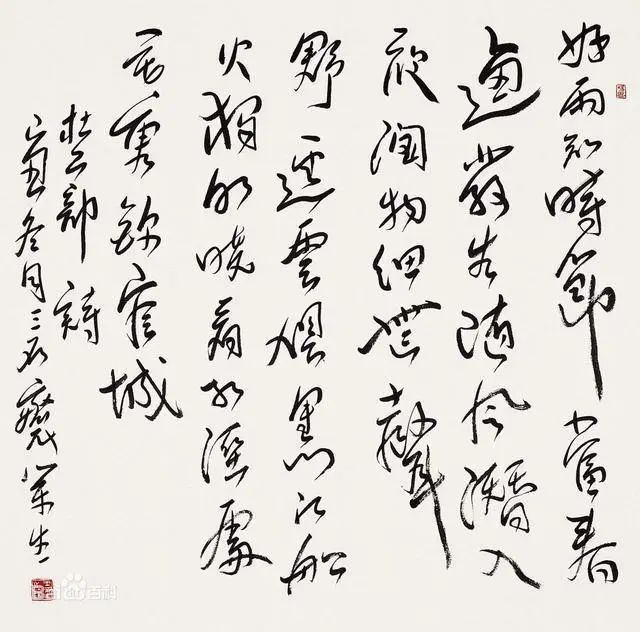 好雨知時節當春
迺發生隨風潛入
夜潤物細無聲
野逕雲俱黑江船
火獨明曉看紅溼處
花重錦官城
杜工部詩
丑冬月三石
百科